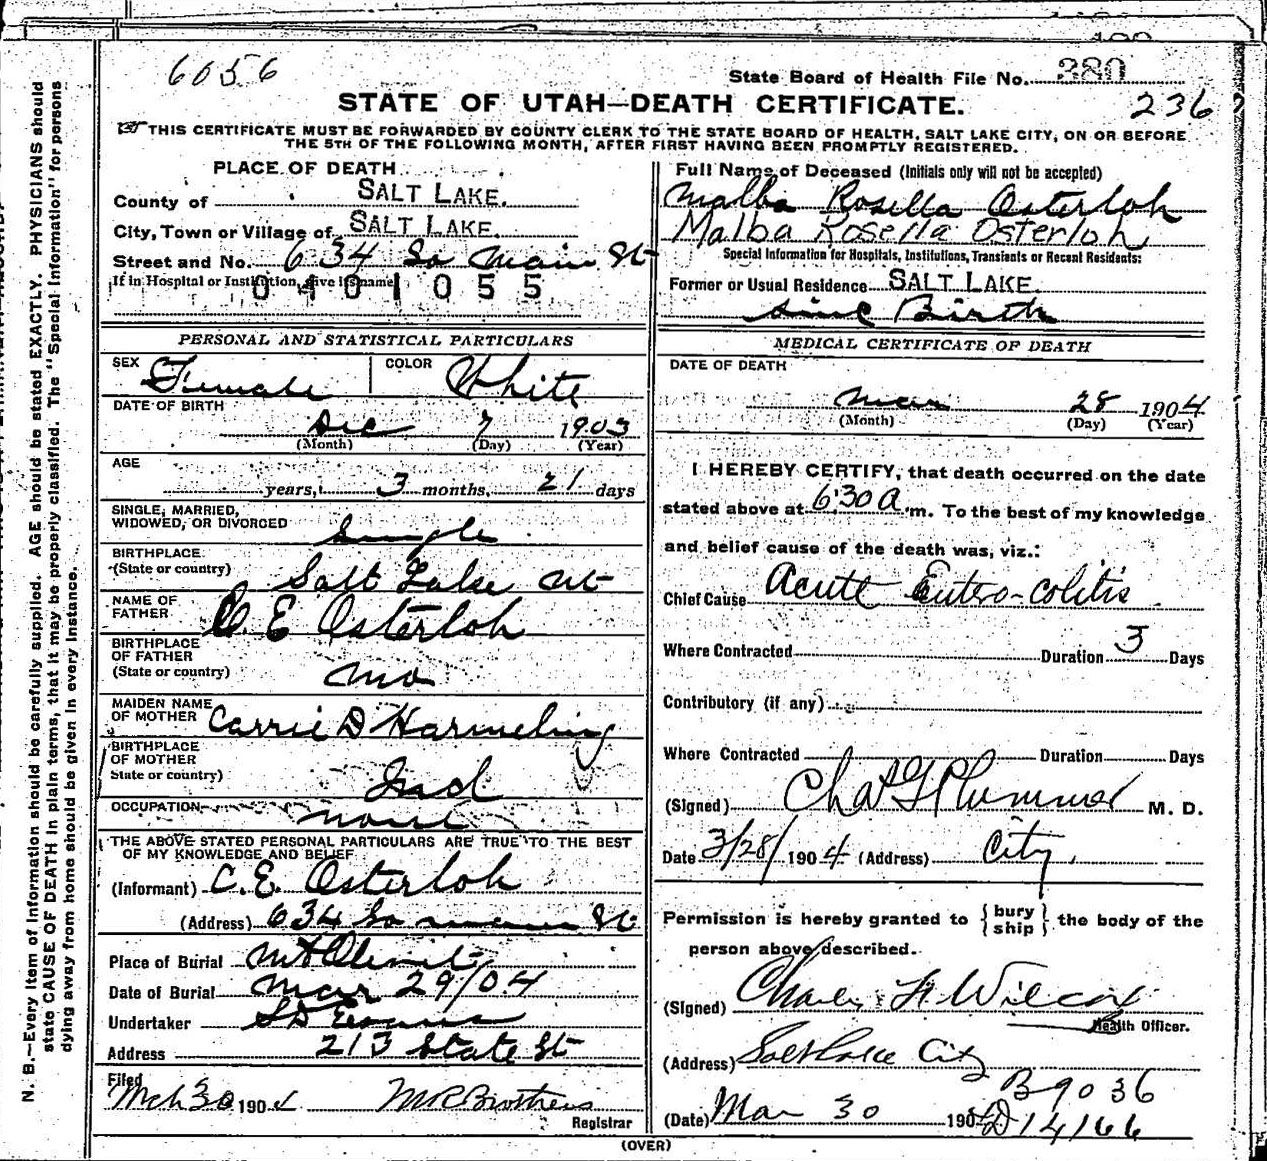 6056
State Board of Health File No. 380
236
STATE OF UTAH—DEATH CERTIFICATE.
THIS CERTIFICATE MUST BE FORWARDED BY COUNTY CLERK TO THE STATE BOARD OF HEALTH, SALT LAKE CITY, ON OR BEFORE
THE 5TH OF THE FOLLOWING MONTH, AFTER FIRST HAVING BEEN PROMPTLY REGISTERED.
N. B.—Every item of information should be carefully supplied. AGE should be stated EXACTLY. PHYSICIANS should
state CAUSE OF DEATH in plain terms, that it may be properly classified. The "Special Information" for persons
dying away from home should be given in every instance.
PLACE OF DEATH
County of SALT LAKE.
City, Town or Village of SALT LAKE.
Street and No. 634 So Main St
If in Hospital or Institution, give its name
0401055
PERSONAL AND STATISTICAL PARTICULARS
SEX Female COLOR White
DATE OF BIRTH
Dec 7 1903
(Month) (Day) (Year)
AGE
years, 3 months, 21 days
SINGLE, MARRIED,
WIDOWED, OR DIVORCED Single
BIRTHPLACE
(State or country) Salt Lake Ut
NAME OF
FATHER C. E Osterloh
BIRTHPLACE
OF FATHER
(State or country) Mo
MAIDEN NAME
OF MOTHER Carrie D Harmeling
BIRTHPLACE
OF MOTHER
State or country) Ind
OCCUPATION none
THE ABOVE STATED PERSONAL PARTICULARS ARE TRUE TO THE BEST
OF MY KNOWLEDGE AND BELIEF
(Informant) C. E. Osterloh
(Address) 634 So main St
Place of Burial Mt Olivet
Date of Burial Mar 29/04
Undertaker S D Evans
Address 213 State St
Filed
Mch 30 1904 M R Brothers
Registrar
Full Name of Deceased (Initials only will not be accepted)
Malba Rosella Osterloh
Malba Rosella Osterloh
Special Information for Hospitals, Institutions, Transients or Recent Residents:
Former or Usual Residence SALT LAKE.
sinc Birth
MEDICAL CERTIFICATE OF DEATH
DATE OF DEATH
Mar 28 1904
(Month) (Day) (Year)
I HEREBY CERTIFY, that death occurred on the date
stated above at 6:30 a .m. To the best of my knowledge
and belief cause of the death was, viz.:
Chief Cause Acute Entero-colitis
Where Contracted Duration 3 Days
Contributory (if any)
Where Contracted Duration Days
(Signed) Chas G Plummer M. D.
Date 3/28/ 1904 (Address) City.
Permission is hereby granted to {bury
ship} the body of the
person above described.
(Signed) Charles F. Wilcox
Health Officer.
(Address) Salt Lake City
B 9036
(Date) Mar 30 1904 D 14166
(OVER)